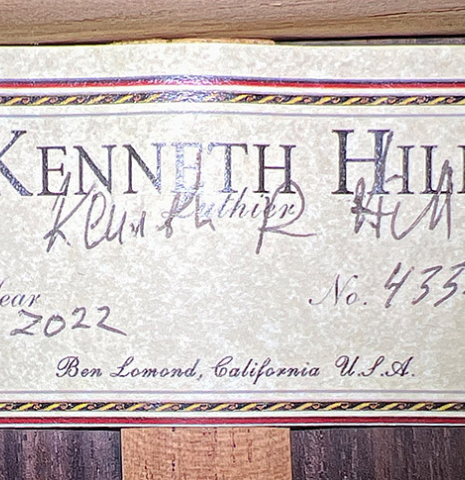 KENNETH HILL
Luthier
Kenneth R Hill
Year
No. 433
2022
Ben Lomond, California U.S.A.